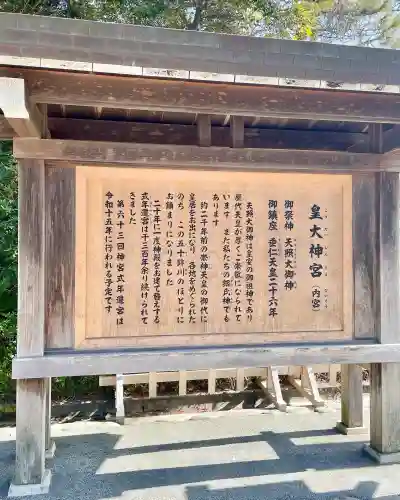 皇大神宮(内宮)
御祭神 天照大御神
御鎮座 垂仁天皇二十六年
天照大御神は皇室の御祖神であり
歴代天皇が厚くご崇敬になられて
います また私たちの総氏神でも
あります
約二千年前の崇神天皇の御代に
皇居をお出になり 各地をめぐられた
のち、この五十鈴川のほとりに
お鎮まりになりました
二十年に一度神殿をお建て替えする
式年遷宮は千三百年余り続けられて
きました
第六十三回神宮式年遷宮は
令和十五年に行われる予定です